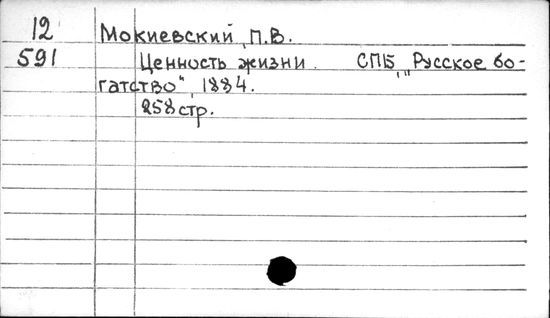 12 Мокиевский, П.В.
591 Ценность жизни. СПБ, "Русское бо-
гатство", 1884.
258 стр.